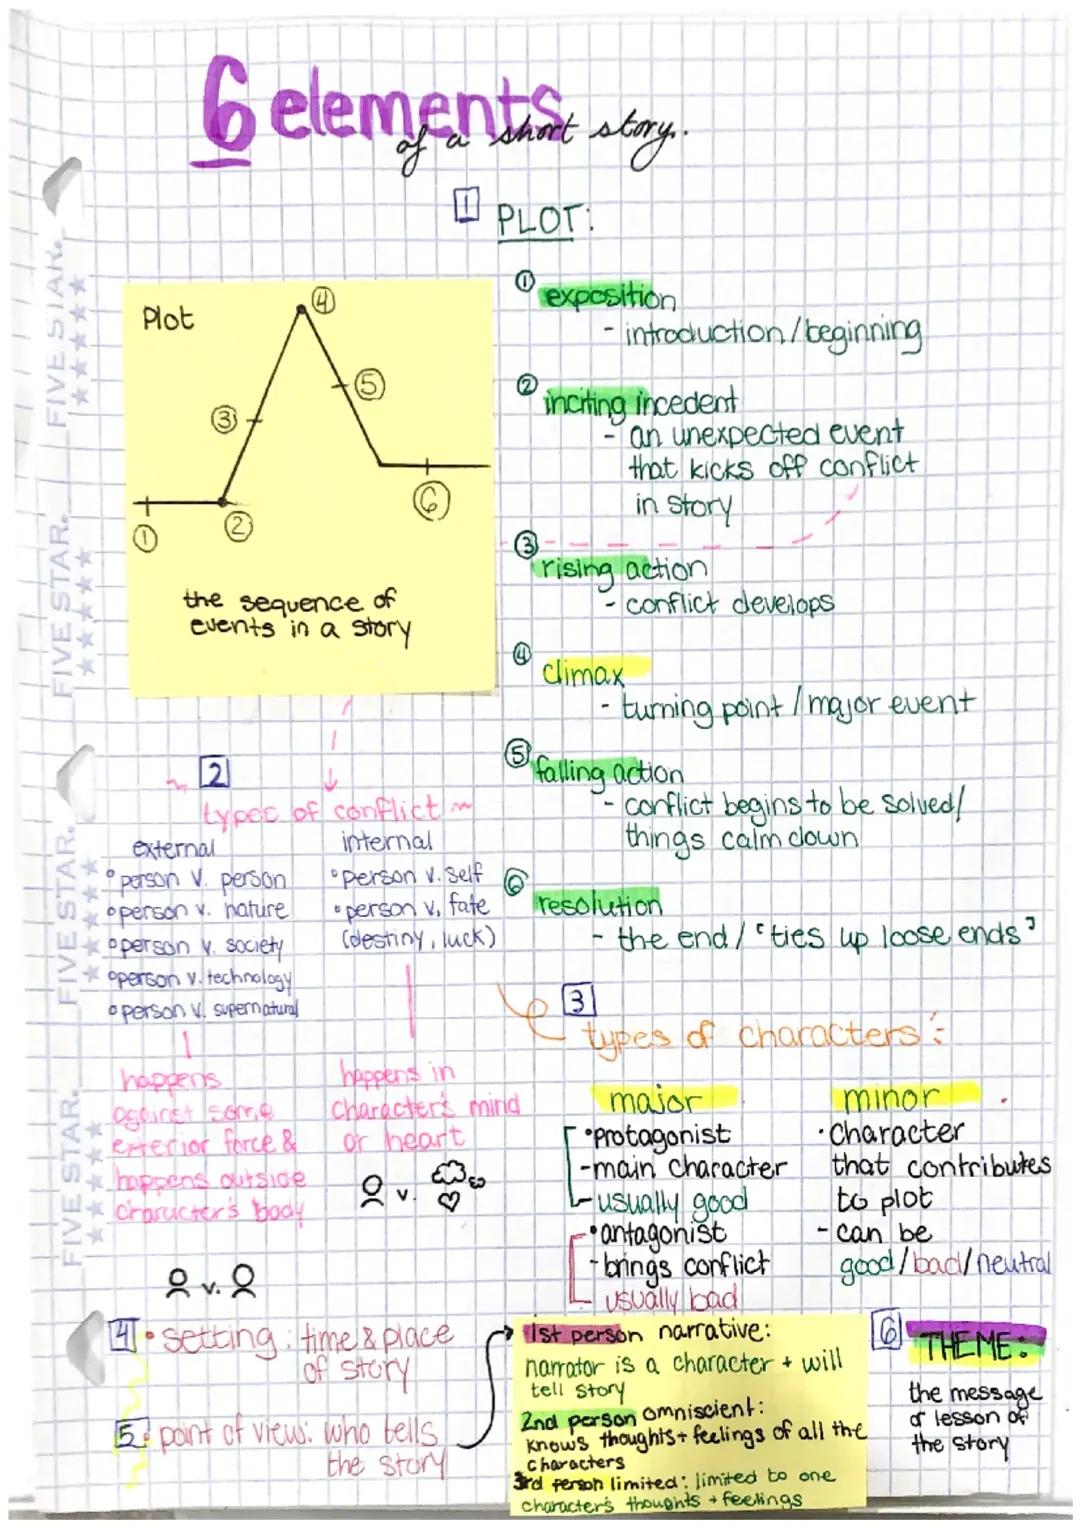 6 elements
of a short story.
1 PLOT:
Plot
1
2
3
4
5
6
the sequence of
events in a story
① exposition
- introduction/beginning
② inciting incedent
- an unexpected event
that kicks off conflict
in story
③ rising action
- conflict develops
④ climax
- turning point / major event
⑤ falling action
- conflict begins to be solved/
things calm down
⑥ resolution
- the end / "ties up loose ends"
2
types of conflict
external
° person v. person
° person v. nature
° person v. society
° person v. technology
° person v. supernatural
happens
against some
exterior force &
happens outside
character's body
v.
internal
° person v. self
° person v. fate
(destiny, luck)
happens in
character's mind
or heart
v.
3
types of characters:
major
• protagonist
- main character
- usually good
• antagonist
- brings conflict
usually bad
minor
· character
that contributes
to plot
- can be
good/bad/neutral
4 • setting: time & place
of story
5 point of view: who tells
the story
1st person narrative:
narrator is a character + will
tell story
2nd person omniscient:
knows thoughts + feelings of all the
characters
3rd person limited: limited to one
character's thoughts + feelings
6 THEME:
the message
or lesson of
the story
FIVE STAR.
FIVE STAR.
FIVE STAR.
FIVE STAR.